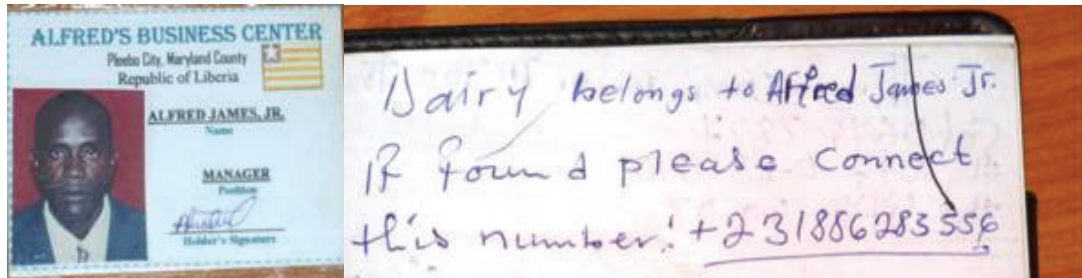 ALFRED'S BUSINESS CENTER
Pleebo City, Maryland County
Republic of Liberia
ALFRED JAMES, JR.
Name
MANAGER
Position
Holder's Signature
Dairy belongs to Alfred James Jr.
If found please connect
this number: +231886283556